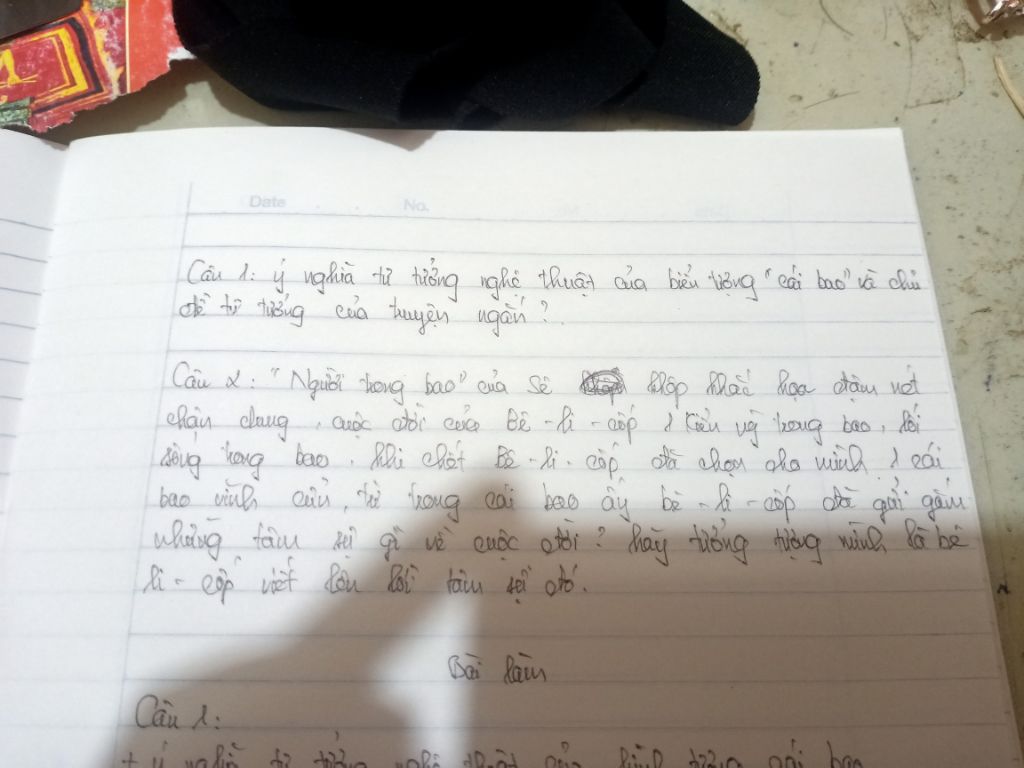 Date No.
Câu 1: ý nghĩa tư tưởng nghệ thuật của biểu tượng "cái bao" và chủ
đề tư tưởng của truyện ngắn?
Câu 2: "Người trong bao" của Sê khốp khắc họa đậm nét
chân dung, cuộc đời của Bê-li-cốp 1 kiểu người trong bao, lối
sống trong bao. khi chết Bê-li-cốp đã chọn cho mình 1 cái
bao vĩnh cửu, từ trong cái bao ấy bê-li-cốp đã gửi gắm
những tâm sự gì về cuộc đời? hãy tưởng tượng mình là bê
li-cốp viết lên lời tâm sự đó.
Bài làm
Câu 1:
+ ý nghĩa tư tưởng nghệ thuật của hình tượng cái bao